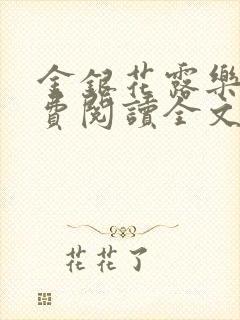 金銀花露樂
費閱讀全文
花花了